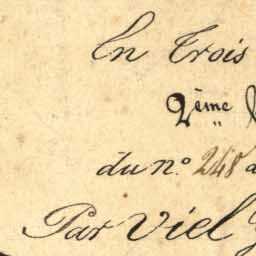 En Trois
2ème
du n.° 248 a
Par Viel